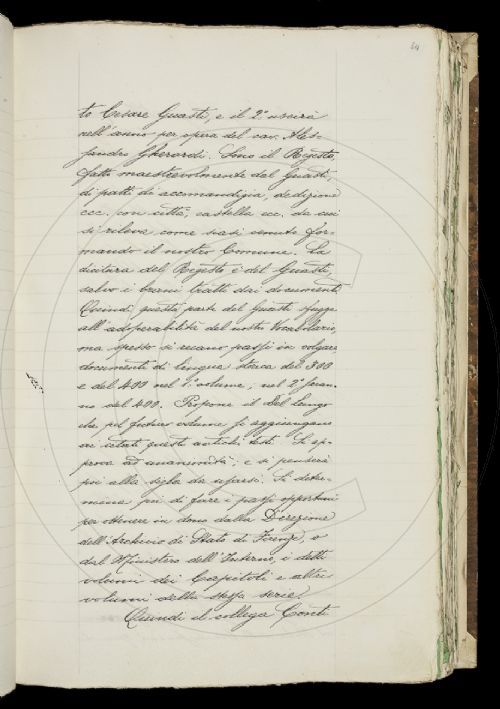 to Cesare Guasti, e il 2º uscirà
nell'anno per opera del cav. Ales-
sandro Gherardi. Sono il Regesto,
fatto maestrevolmente dal Guasti,
di patti di accomandigia, dedizione
ecc. con città, castella ecc. da cui
si rileva come siasi venuto for-
mando il nostro Comune. La
dicitura del Regesto è del Guasti,
salvo i brani tratti dai documenti.
Quindi questa parte del Guasti sfugge
all'adoperabilità del nostro Vocabolario,
ma spesso si recano passi in volgare,
documenti di lingua storica del 300
e del 400 nel 1º volume; nel 2º saran-
no del 400. Propone il Del Lungo
che pel futuro volume si aggiungano
ai citati questi antichi testi. Si ap-
prova ad unanimità; e si penserà
poi alla sigla da usarsi. Si deter-
mina poi di fare i passi opportuni
per ottenere in dono dalla Direzione
dell'Archivio di Stato di Firenze, o
dal Ministero dell'Interno, i detti
volumi dei Capitoli e altri
volumi della stessa serie.
Quindi il collega Conti